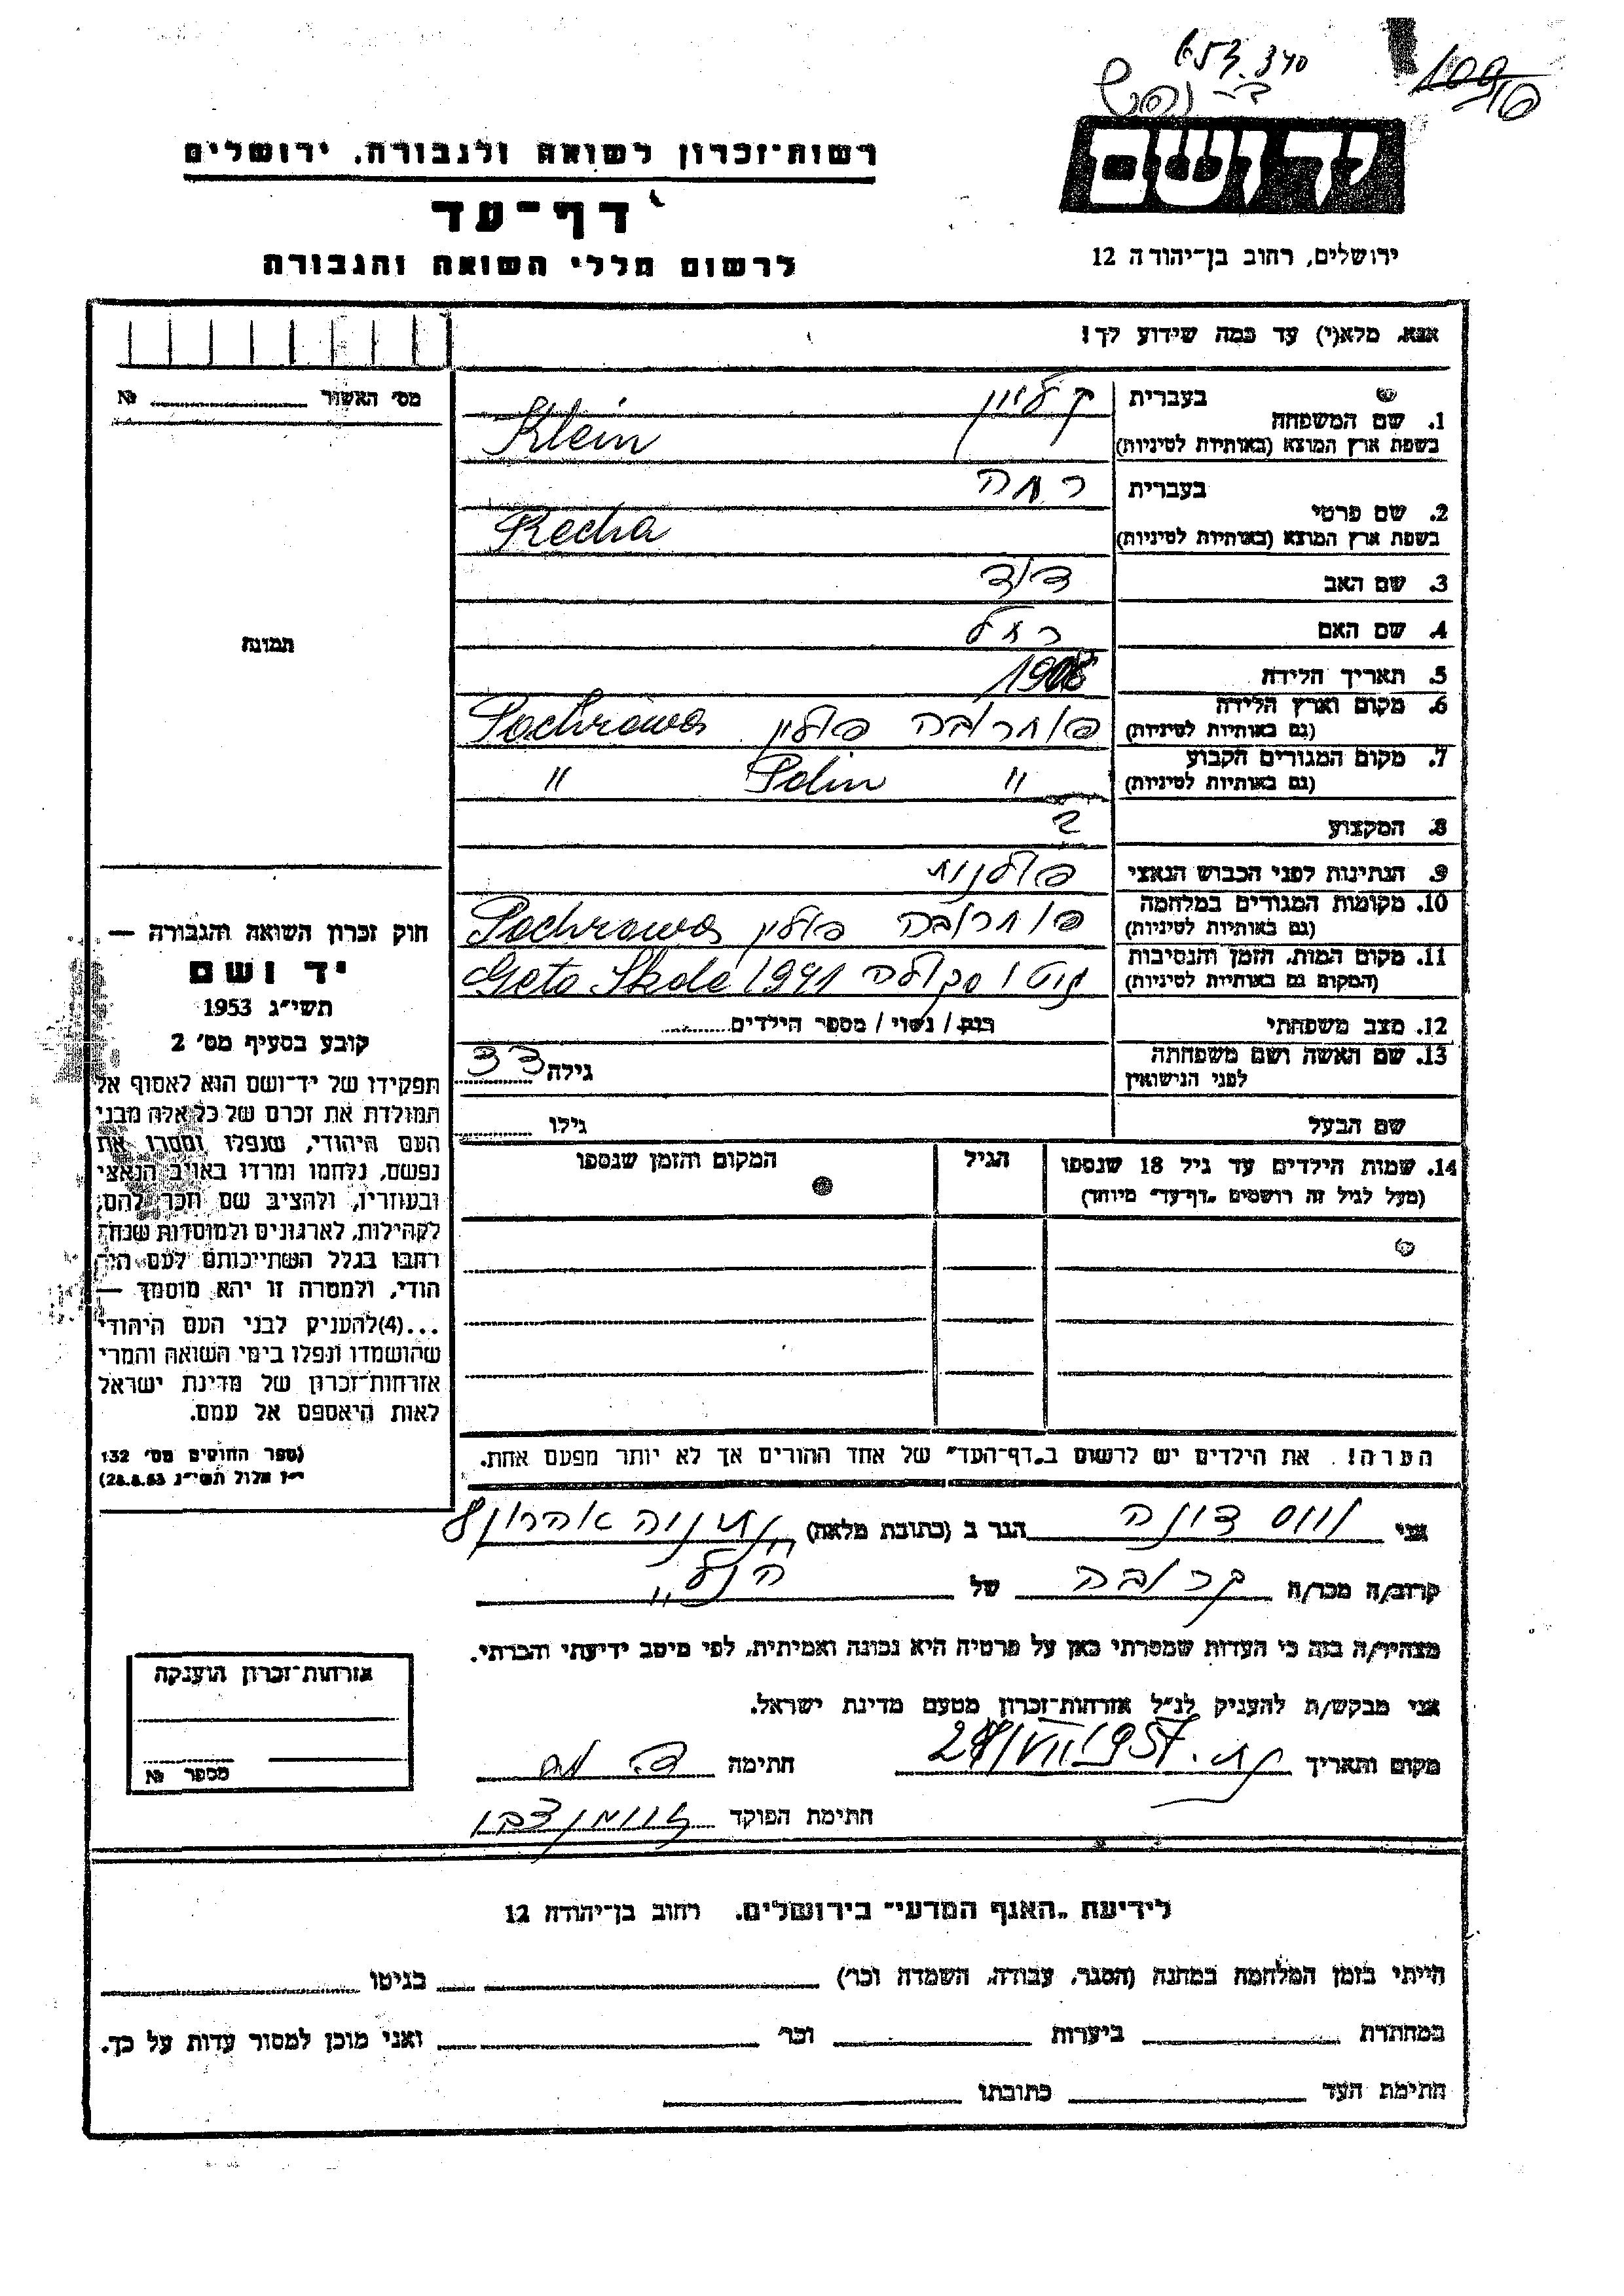 653.340
יד ושם
ירושלים, רחוב בן־יהודה 12
רשות־זכרון לשואה ולגבורה, ירושלים
דף־עד
לרשום חללי השואה והגבורה
אנא, מלא(י) עד כמה שידוע לך!
מס' האשור № 
1. שם המשפחה
בעברית קליין
בשפת ארץ המוצא (באותיות לטיניות) Klein
2. שם פרטי
בעברית רחה
בשפת ארץ המוצא (באותיות לטיניות) Recha
3. שם האב דוד
4. שם האם רחל
5. תאריך הלידה 1908
6. מקום וארץ הלידה
(גם באותיות לטיניות) פוחרובה פולין Pochrowa
7. מקום המגורים הקבוע
(גם באותיות לטיניות) " Polin "
8. המקצוע ?
9. הנתינות לפני הכבוש הנאצי פולנית
10. מקומות המגורים במלחמה
(גם באותיות לטיניות) פוחרובה פולין Pochrowa
11. מקום המות, הזמן והנסיבות
(המקום גם באותיות לטיניות) גיטו סקולה 1941 Geto Skole
12. מצב משפחתי רווק / נשוי / מספר הילדים
13. שם האשה ושם משפחתה
לפני הנישואין גילה 33
שם הבעל גילו
14. שמות הילדים עד גיל 18 שנספו
(מעל לגיל זה רושמים "דף־עד" מיוחד)
הגיל
המקום והזמן שנספו
הערה! את הילדים יש לרשום ב"דף־העד" של אחד ההורים אך לא יותר מפעם אחת.
תמונה
חוק זכרון השואה והגבורה —
יד ושם
תשי"ג 1953
קובע בסעיף מס' 2
תפקידו של יד־ושם הוא לאסוף אל
המולדת את זכרם של כל אלה מבני
העם היהודי, שנפלו ומסרו את
נפשם, נלחמו ומרדו באויב הנאצי
ובעוזריו, ולהציב שם וזכר להם,
לקהילות, לארגונים ולמוסדות שנח־
רבו בגלל השתייכותם לעם היה־
הודי, ולמטרה זו יהא מוסמך —
...(4)להעניק לבני העם היהודי
שהושמדו ונפלו בימי השואה והמרי
אזרחות־זכרון של מדינת ישראל
לאות היאספם אל עמם.
(ספר החוקים מס' 132
י"ז אלול תשי"ג 28.8.53)
אני ווס דונה הגר ב (כתובת מלאה) נתניה
קרוב/ה מכר/ה קרובה של הנ"ל
מצהיר/ה בזה כי העדות שמסרתי כאן על פרטיה היא נכונה ואמיתית, לפי מיטב ידיעתי והכרתי.
אני מבקש/ת להעניק לנ"ל אזרחות־זכרון מטעם מדינת ישראל.
מקום ותאריך נת. VII/1957 חתימה
חתימת הפוקד
אזרחות־זכרון הוענקה
מספר №
לידיעת "האגף המדעי" בירושלים, רחוב בן־יהודה 12
הייתי בזמן המלחמה במחנה (הסגר, עבודה, השמדה וכו') בגיטו
במחתרת ביערות וכו' ואני מוכן למסור עדות על כך.
חתימת העד כתובתו